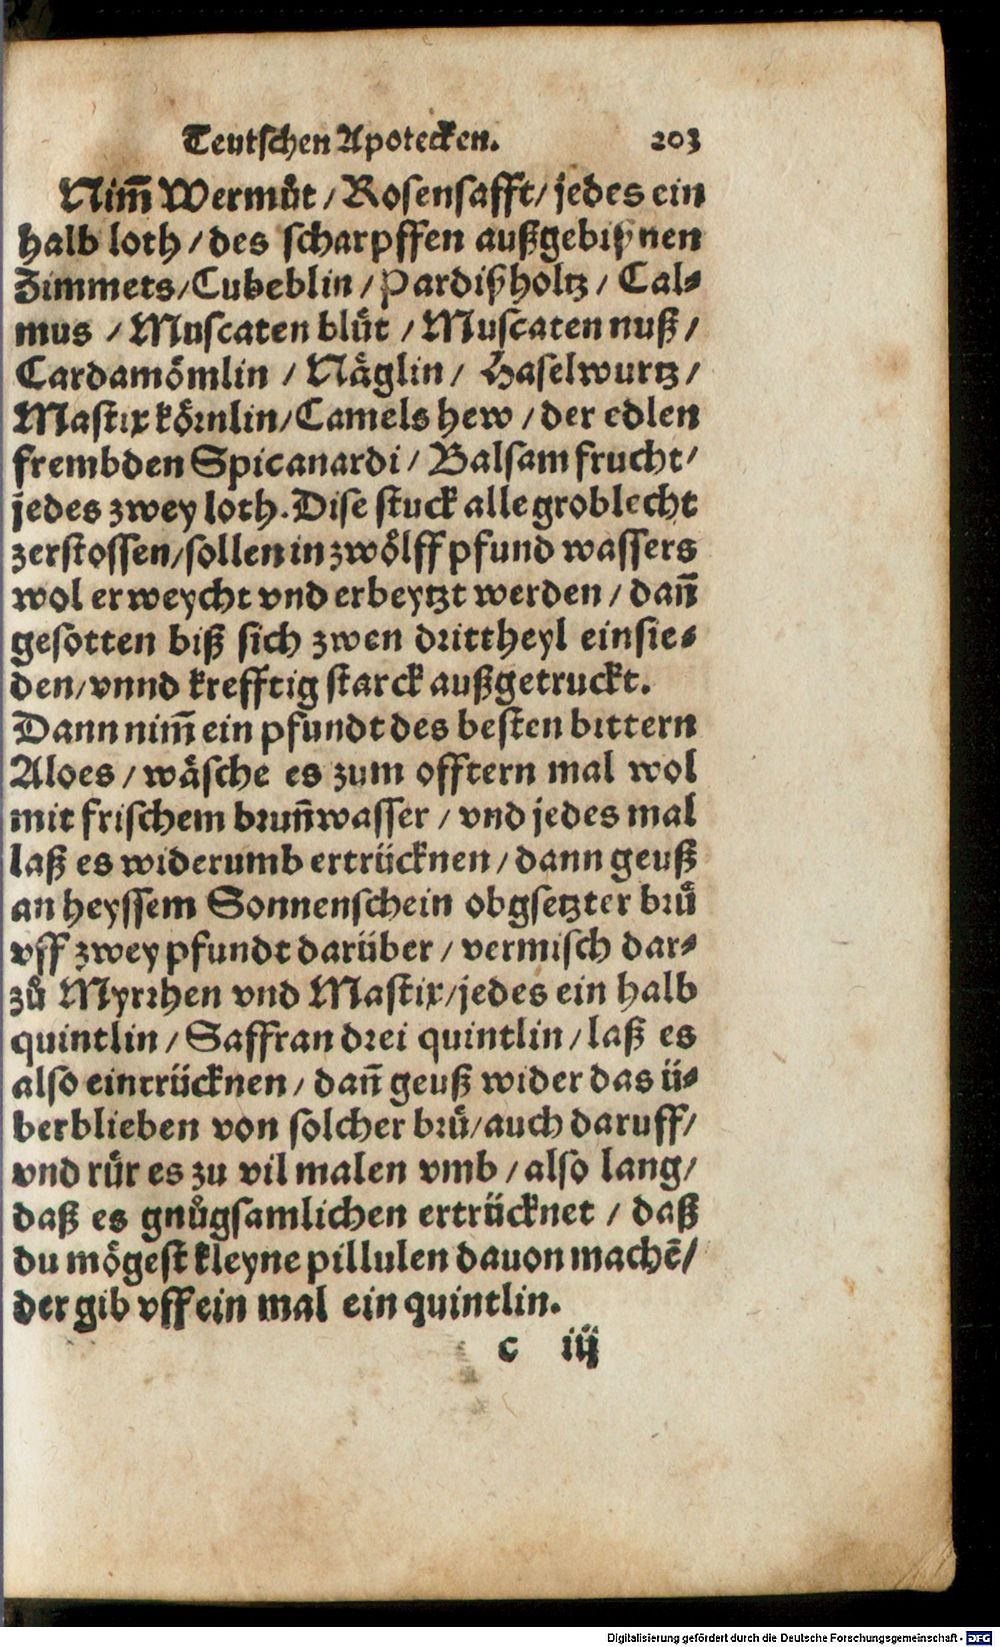 Teutschen Apotecken. 203
Nim̃ Wermůt / Rosensafft / jedes ein
halb loth / des scharpffen außgebißnen
Zimmets / Cubeblin / Pardißholtz / Cal⸗
mus / Muscaten blůt / Muscaten nuß /
Cardamömlin / Näglin / Haselwurtz /
Mastix körnlin / Camels hew / der edlen
frembden Spicanardi / Balsam frucht /
jedes zwey loth. Dise stuck alle groblecht
zerstossen / sollen in zwölff pfund wassers
wol erweycht vnd erbeytzt werden / dañ
gesotten biß sich zwen drittheyl einsie⸗
den / vnnd krefftig starck außgetruckt.
Dann nim̃ ein pfundt des besten bittern
Aloes / wäsche es zum offtern mal wol
mit frischem bruñwasser / vnd jedes mal
laß es widerumb ertrücknen / dann geuß
an heyssem Sonnenschein obgsetzter brů
vff zwey pfundt darüber / vermisch dar⸗
zů Myrrhen vnd Mastix / jedes ein halb
quintlin / Saffran drei quintlin / laß es
also eintrücknen / dañ geuß wider das ü⸗
berblieben von solcher brů / auch daruff /
vnd růr es zu vil malen vmb / also lang /
daß es gnůgsamlichen ertrücknet / daß
du mögest kleyne pillulen dauon machē /
der gib vff ein mal ein quintlin.
c iij
Digitalisierung gefördert durch die Deutsche Forschungsgemeinschaft - DFG